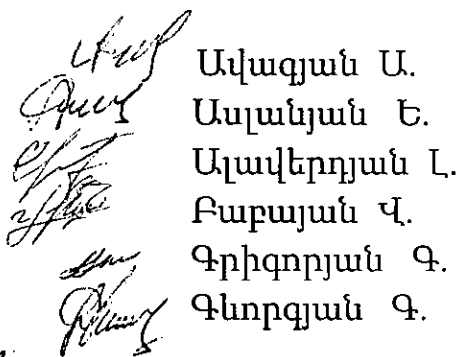 Ավագյան Ա.
Ասլանյան Ե.
Ալավերդյան Լ.
Բաբայան Վ.
Գրիգորյան Գ.
Գևորգյան Գ.